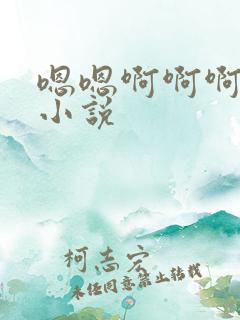 嗯嗯啊啊啊
小说
柯志宏
未经同意禁止转载